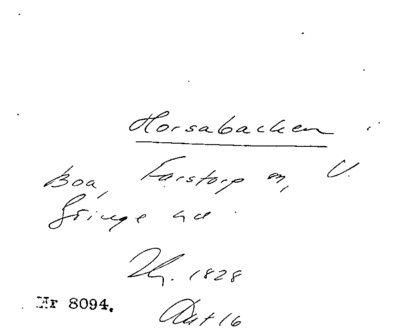 Horsabacken i
Boa, Farstorp sn, V.
Göinge hd.
Zhg. 1828
Akt 16
Nr 8094.